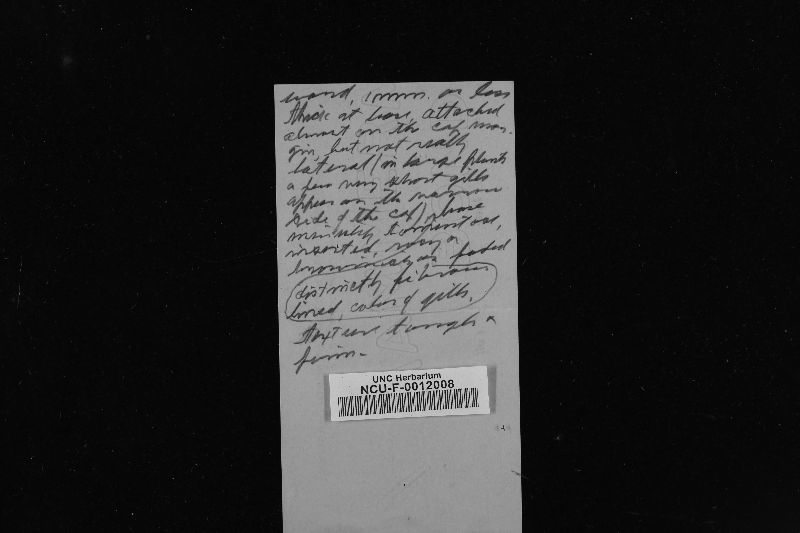 ward, 1 mm. or less
thick at base, attached
almost on the cap mar-
gin, but not really
lateral (in large plants
a few very short gills
appear on the narrow
side of the cap), base
minutely tomentose,
inserted, rosy or
brownish as faded
distinctly fibrous
lined, color of gills.
Texture tough &
firm.
UNC Herbarium
NCU-F-0012008